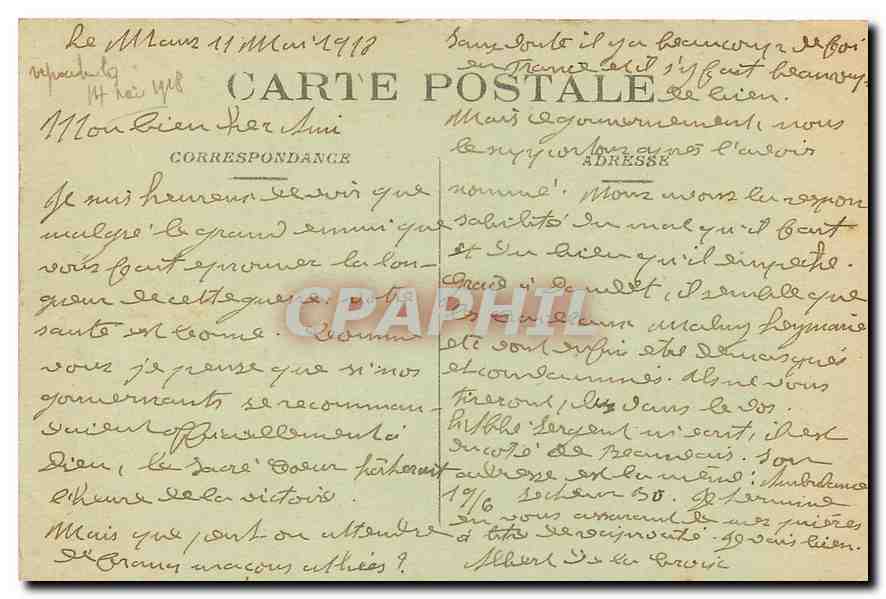 Le Mans 11 Mai 1918
14 Mai 1918
CARTE POSTALE
Mon bien cher Ami
CORRESPONDANCE
Je suis heureux de voir que
malgré le grand ennui que
vous fait éprouver la lon-
gueur de cette guerre, votre
santé est bonne. Comme
vous je pense que si nos
gouvernants se recomman-
daient officiellement à
Dieu, le Sacré Coeur hâterait
l'heure de la victoire.
Mais que peut on attendre
de francs maçons athées ?
Sans doute il y a beaucoup de foi
en France et il s'y fait beaucoup
de bien.
Mais ce gouvernement, nous
le supportons après l'avoir
ADRESSE
nommé. Nous avons la respon
sabilité du mal qu'il fait
et du bien qu'il empêche.
Grâce à Daudet, il semble que
les Malvy Leymarie
etc vont enfin être démasqués
et condamnés. Ils ne vous
tireront plus dans le dos.
L'Abbé Sergent m'écrit, il est
du côté de Beauvais. Son
adresse est la même : Ambulance
19/6 secteur 30. Je termine
en vous assurant de mes prières
à titre de réciprocité. Je vais bien.
Albert de la
CPAPHIL